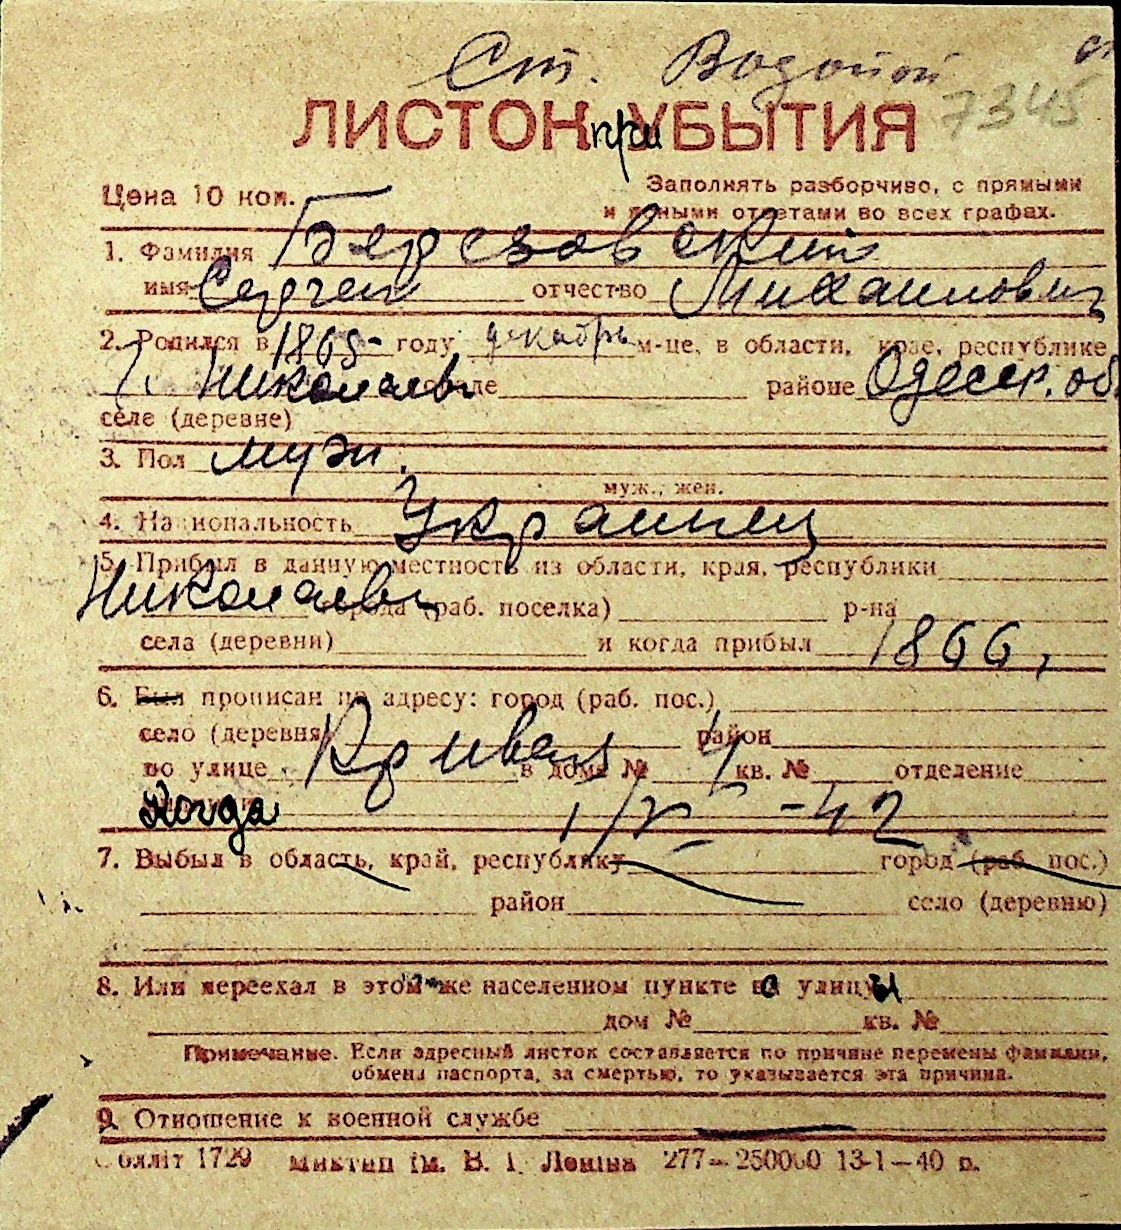 Ст. Водопой
7345
ЛИСТОК при УБЫТИЯ
Цена 10 коп.
Заполнять разборчиво, с прямыми
и ясными ответами во всех графах.
1. Фамилия Березовский
имя Сергей отчество Михайлович
2. Родился в 1865 году декабрь м-це, в области, крае, республике
г. Николаев городе районе Одесск. об
селе (деревне)
3. Пол муж.
муж., жен.
4. Национальность Украинец
5. Прибыл в данную местность из области, края, республики
Николаев города (раб. поселка) р-на
села (деревни) и когда прибыл 1866,
6. Был прописан по адресу: город (раб. пос.)
село (деревня) район
по улице Кривая в доме № 4 кв. № отделение
Когда 1/V -42
7. Выбыл в область, край, республику город (раб. пос.)
район село (деревню)
8. Или переехал в этом же населенном пункте с улицы
дом № кв. №
Примечание. Если адресный листок составляется по причине перемены фамилии,
обмена паспорта, за смертью, то указывается эта причина.
9. Отношение к военной службе
Облліт 1729 ім. В. І. Леніна 277—250000 13-1—40 р.